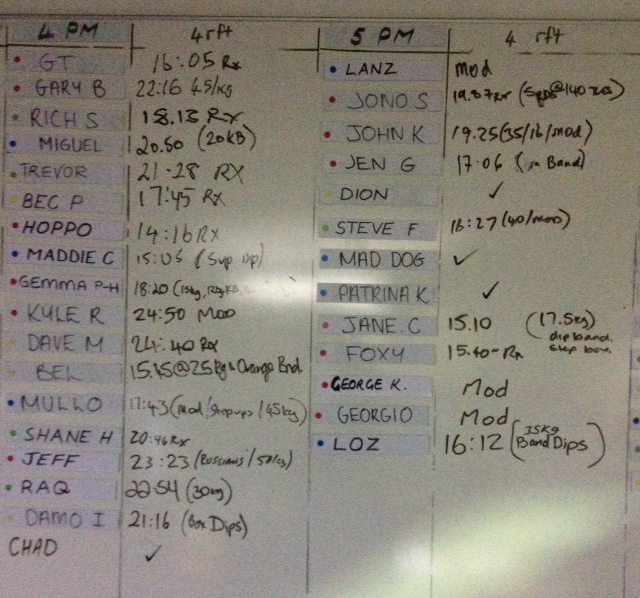 4 PM 4 rft
GT 16:05 Rx
GARY B 22:16 45/kg
RICH S 18.13 Rx
MIGUEL 20.50 (20KB)
TREVOR 21-28 RX
BEC P 17:45 RX
HOPPO 14:16 RX
MADDIE C 15:05 (Sup Dip)
GEMMA P-H 18:20 (15kg, 12kg KB,
KYLE R 24:50 MOD
DAVE M 24:40 RX
BEL 15.15@25kg & Orange Bnd.
MULLO 17:43 (mod/stepups/45kg)
SHANE H 20:46 Rx
JEFF 23:23 (Russians/50kg)
RAQ 22:54 (30kg)
DAMO I 21:16 (Box Dips)
CHAD ✓
5 PM 4 rft
LANZ Mod
JONO S 19.07 Rx
JOHN K 19.25 (35/16/mod)
JEN G 17:06 Band)
DION ✓
STEVE F 16:27 (40/mod)
MAD DOG ✓
PATRINA K ✓
JANE.C 15.10 (17.5kg)
dip band.
step box.
FOXY 15.40-Rx
GEORGE K. Mod
GEORGIO Mod
LOZ 16:12 (35kg
Band Dips)